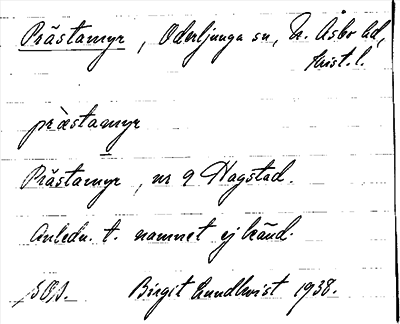 Prästamyr, Oderljunga sn, N. Åsbo hd,
Krist. l.
præ̀stamyr
Prästamyr, nr 9 Hagstad.
Anledn. t. namnet ej känd.
Birgit Lundkvist 1938.